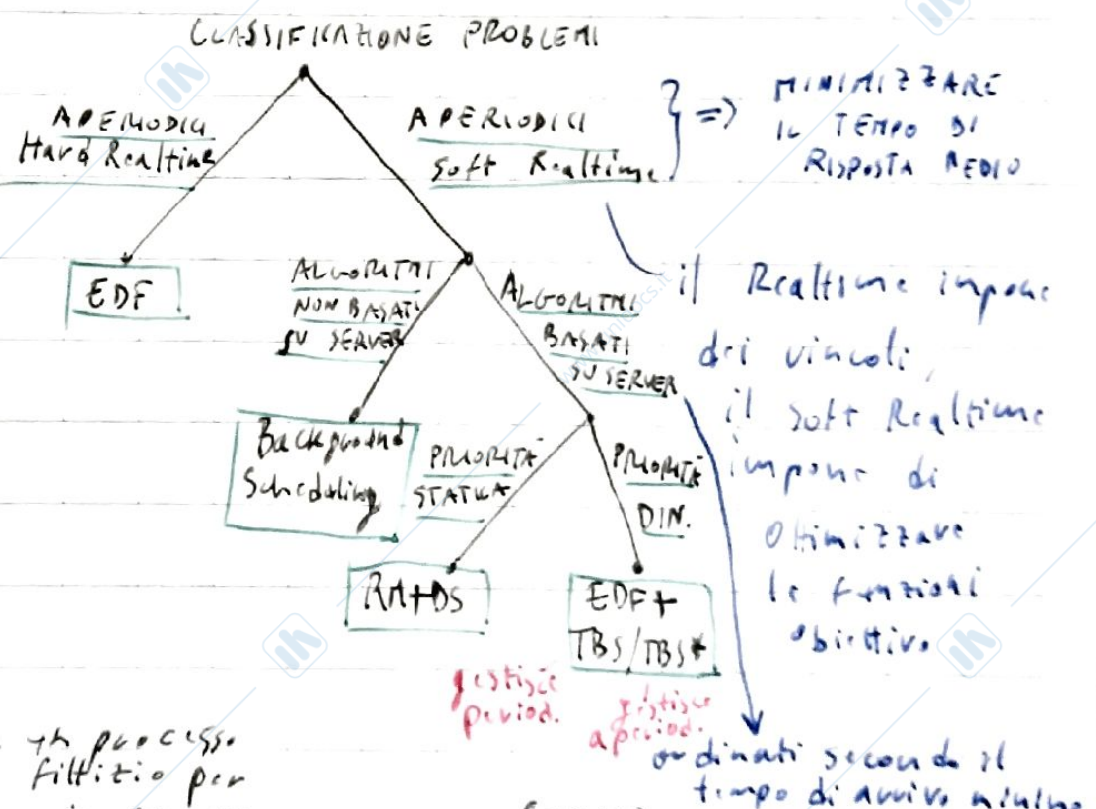 CLASSIFICAZIONE PROBLEMI
APERIODICI
Hard Realtime
APERIODICI
Soft Realtime
} =>
MINIMIZZARE
IL TEMPO DI
RISPOSTA MEDIO
EDF
ALGORITMI
NON BASATI
SU SERVER
ALGORITMI
BASATI
SU SERVER
il Realtime impone
dei vincoli,
il Soft Realtime
impone di
ottimizzare
le funzioni
obiettivo
Background
Scheduling
PRIORITÀ
STATICA
PRIORITÀ
DIN.
RM+DS
EDF+
TBS/TBS*
gestisce
period.
gestisce
aperiod.
ordinati secondo il
tempo di arrivo minimo
un processo
fittizio per